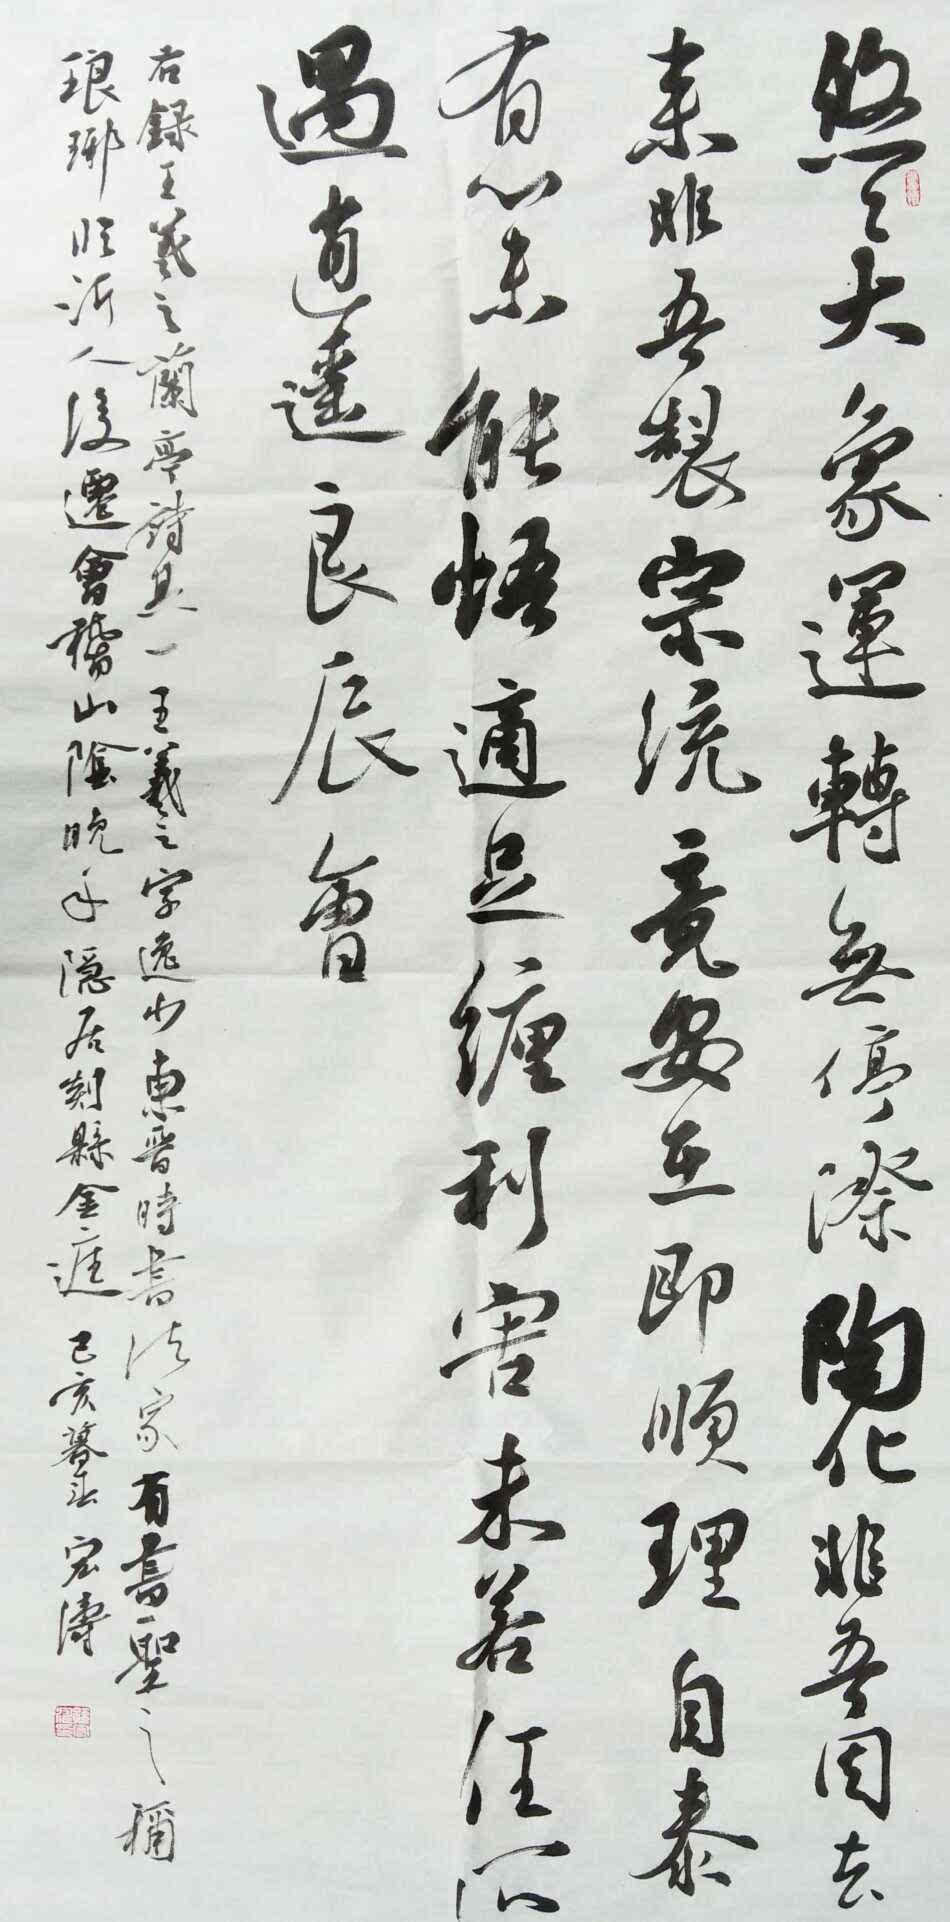 悠〻大象運轉無停際陶化非吾因去
来非吾製宗統竟安在即順理自泰
有心未能悟適足纏利害未若任所
遇逍遥良辰會
右録王羲之蘭亭詩其一王羲之字逸少東晉時書法家有書聖之稱
琅琊临沂人後遷會稽山陰晚年隱居剡縣金庭己亥暮春宏濤